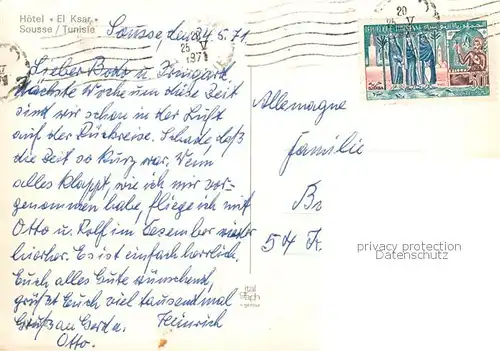 Hôtel « El Ksar »
Sousse / Tunisie
Sousse, den 24.5.71
20
25 V
1971
20
V
REPUBLIQUE TUNISIENNE
Lieber Bodo u. Irmgard,
Nächste Woche um diese Zeit
sind wir schon in der Luft
auf der Rückreise. Schade, daß
die Zeit so kurz war. Wenn
alles klappt, wie ich mir vor-
genommen habe, fliege ich mit
Otto u. Rolf im Dezember wieder
hierher. Es ist einfach herrlich.
Euch alles Gute wünschend,
grüßt Euch viel tausendmal
Heinrich
Gruß an Gerda.
Otto.
Allemagne
Familie
B
54 K
privacy protection
Datenschutz